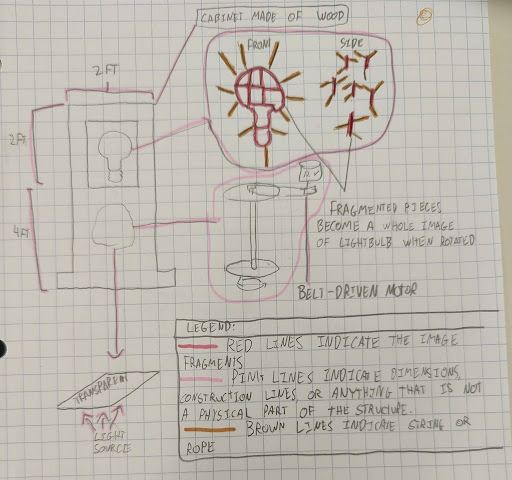 CABINET MADE OF WOOD
2FT
FRONT
SIDE
2FT
4FT
FRAGMENTED PIECES
BECOME A WHOLE IMAGE
OF LIGHTBULB WHEN ROTATED
BELT-DRIVEN MOTOR
TRANSPARENT
LIGHT
SOURCE
LEGEND:
RED LINES INDICATE THE IMAGE
FRAGMENTS
PINK LINES INDICATE DIMENSIONS,
CONSTRUCTION LINES, OR ANYTHING THAT IS NOT
A PHYSICAL PART OF THE STRUCTURE.
BROWN LINES INDICATE STRING OR
ROPE